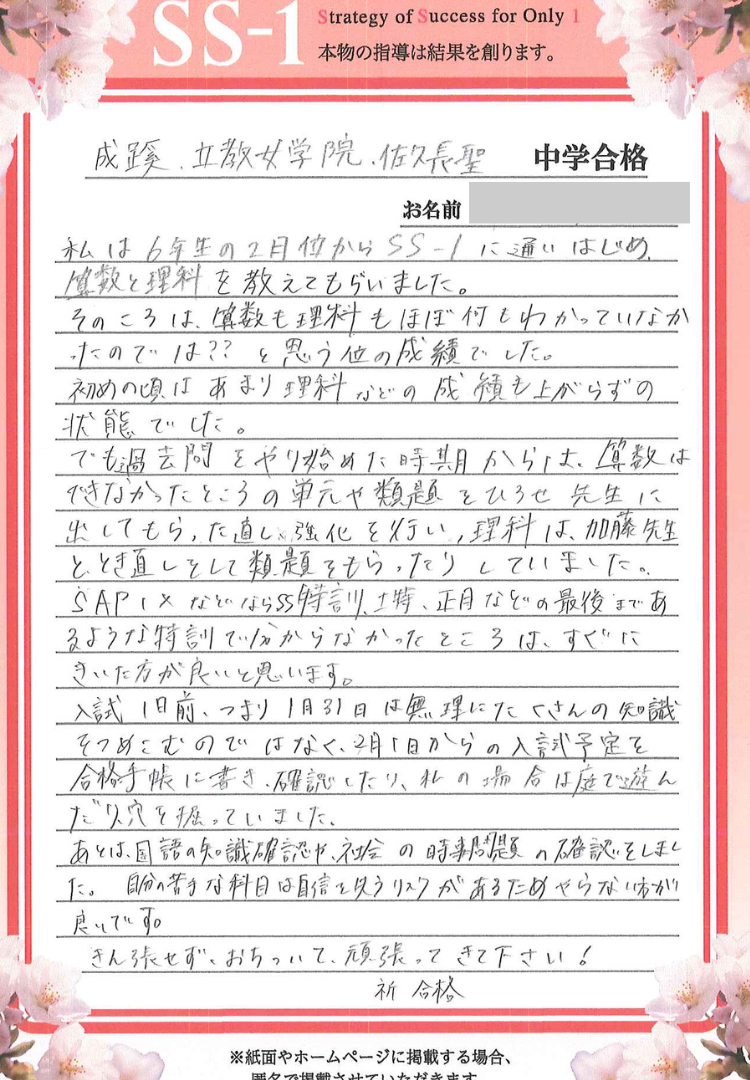 SS-1
Strategy of Success for Only 1
本物の指導は結果を創ります。
成蹊、立教女学院、佐久長聖 中学合格
お名前
私は6年生の2月位からSS-1に通いはじめ、
算数と理科を教えてもらいました。
そのころは、算数も理科もほぼ何もわかっていなか
ったのでは?? と思う位の成績でした。
初めの頃はあまり理科などの成績も上がらずの
状態でした。
でも過去問をやり始めた時期からは、算数は
できなかったところの単元や類題をひろせ先生に
出してもらった直し、強化を行い、理科は、加藤先生
ととき直しそして類題をもらったりしていました。
SAPIXなどならSS特訓、土特、正月などの最後まであ
るような特訓で分からなかったところは、すぐに
きいた方が良いと思います。
入試1日前、つまり1月31日は無理にたくさんの知識
をつめこむのではなく、2月1日からの入試予定を
合格手帳に書き、確認したり、私の場合は庭で遊ん
だり穴を掘っていました。
あとは、国語の知識確認や、社会の時事問題の確認をしまし
た。 自分の苦手な科目は自信を失うリスクがあるためやらない方が
良いです。
きん張せず、おちついて、頑張ってきて下さい!
祈 合格
※紙面やホームページに掲載する場合、
匿名で掲載させていただきます。